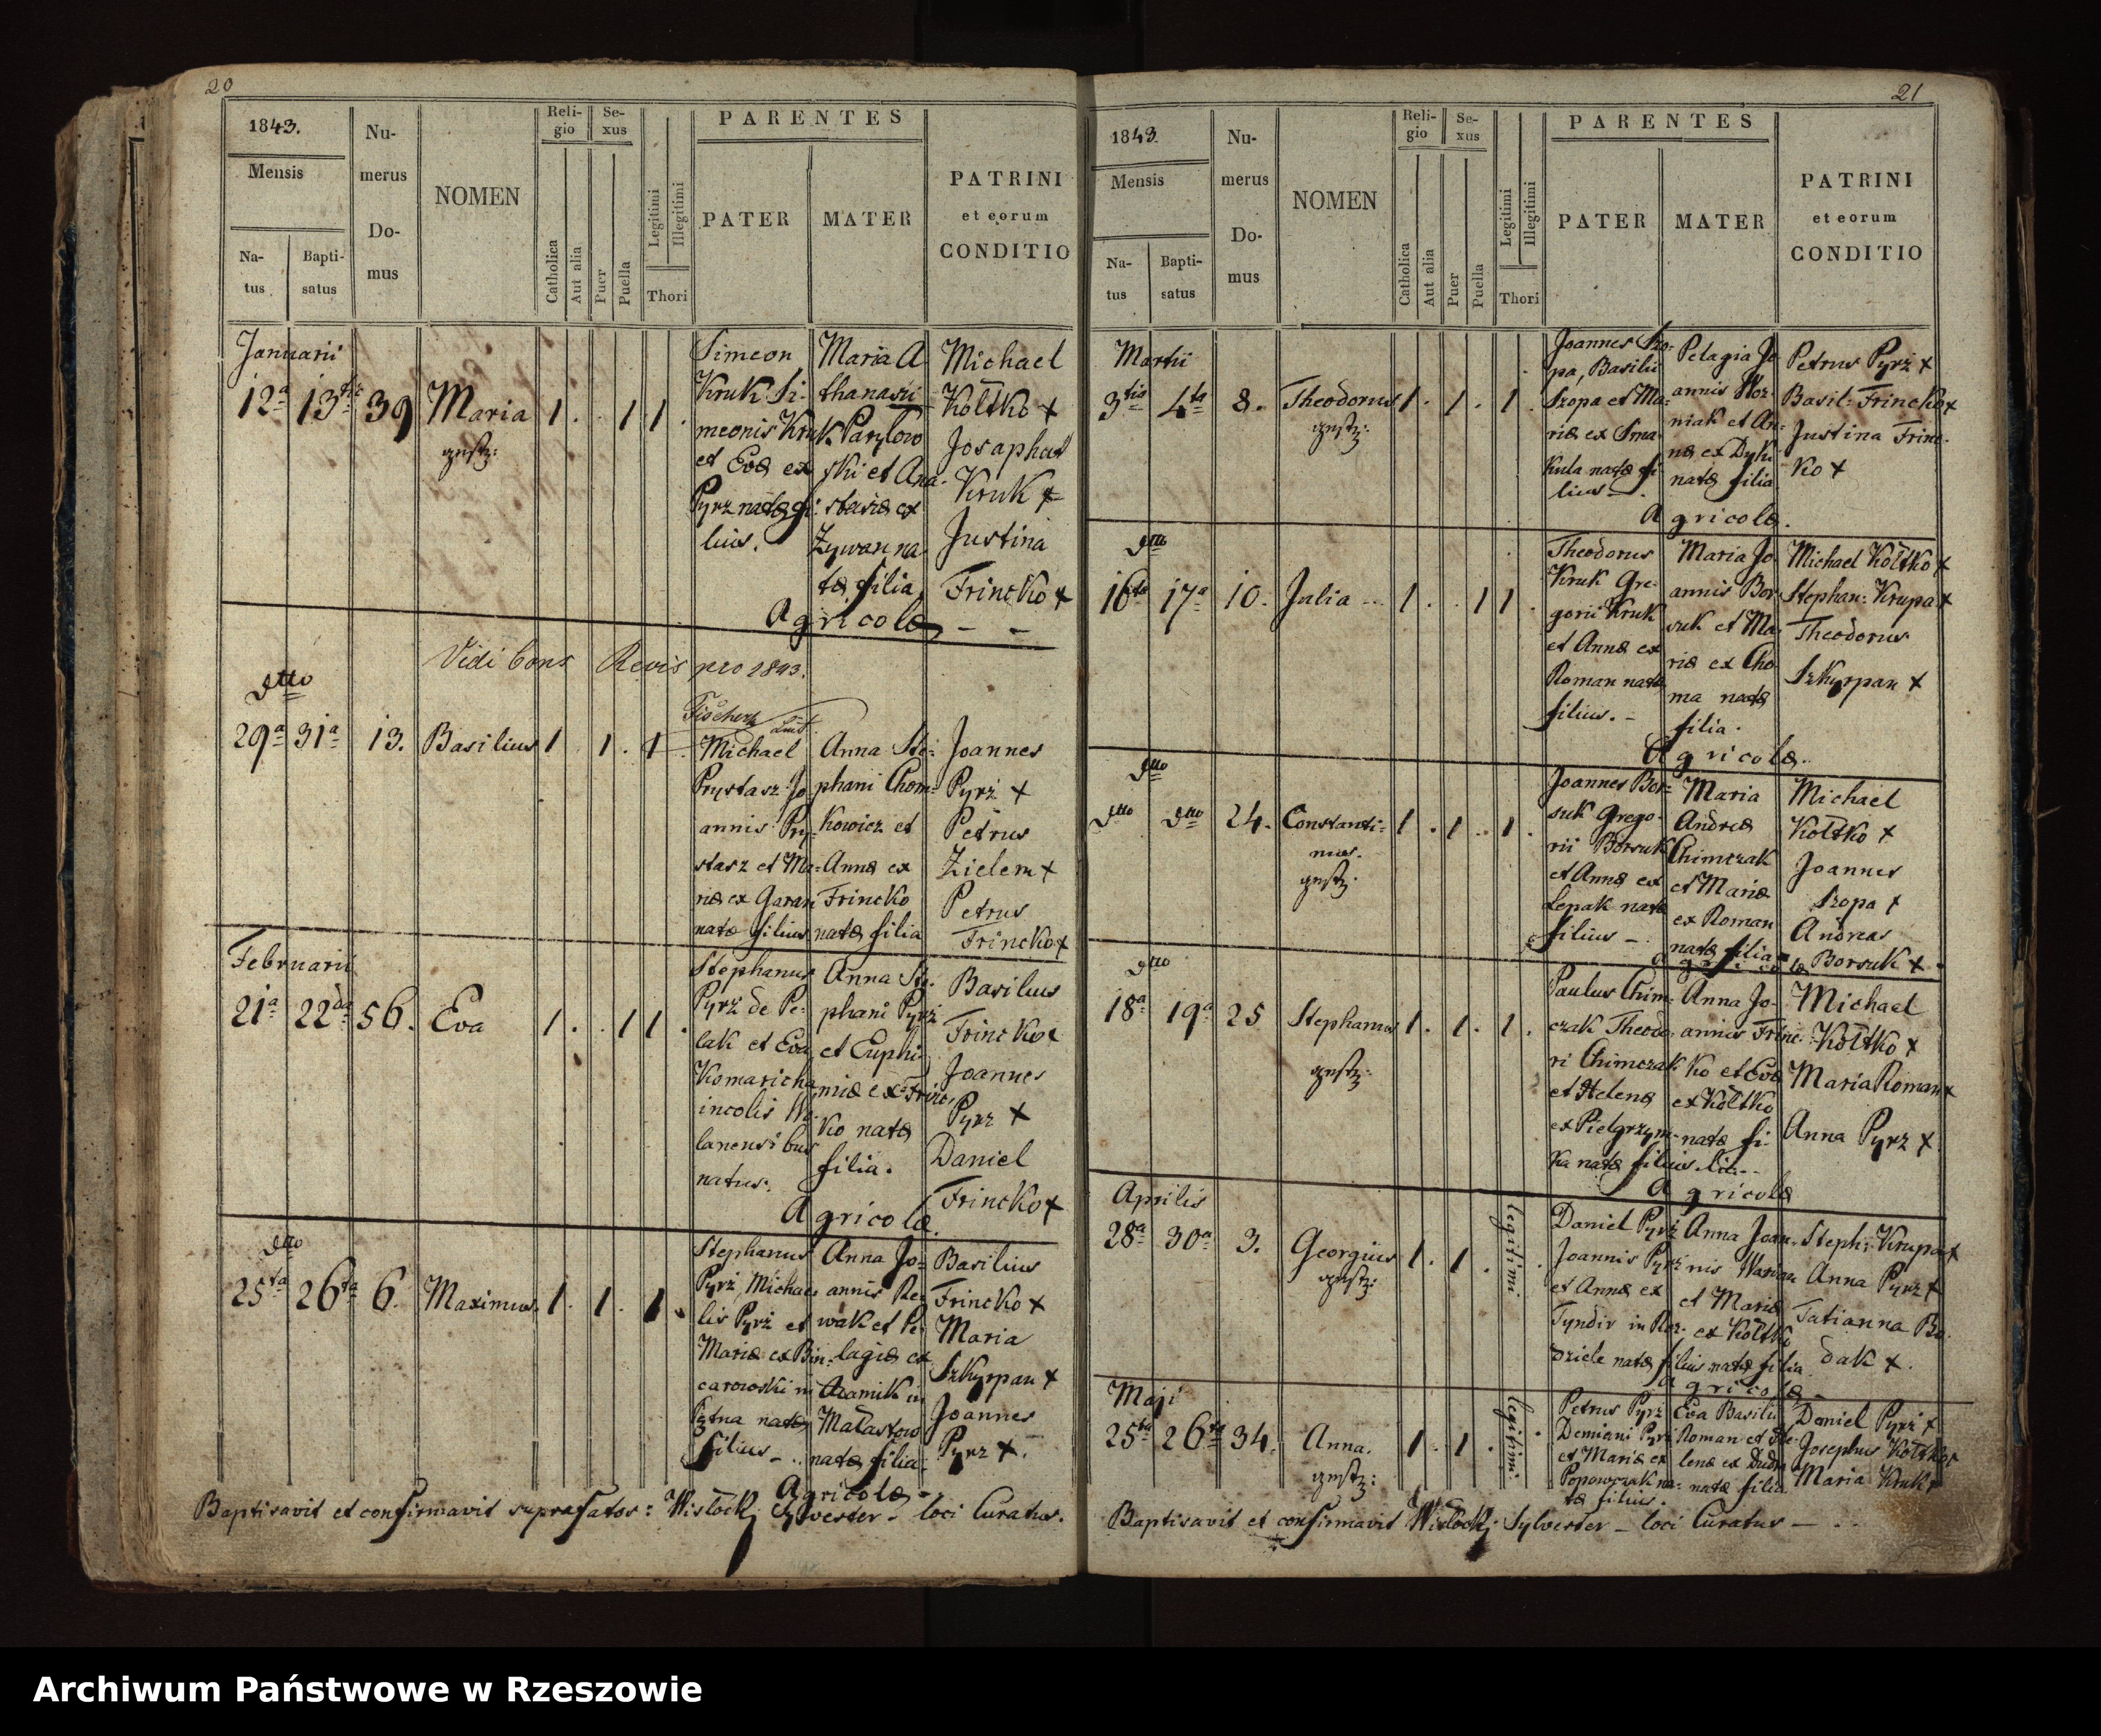 20
1843.
Mensis
Na-
tus
Bapti-
satus
Nu-
merus
Do-
mus
NOMEN
Reli-
gio
Catholica
Aut alia
Se-
xus
Puer
Puella
Legitimi
Illegitimi
Thori
PARENTES
PATER
MATER
PATRINI
et eorum
CONDITIO
Januarii
12ª 13tia 39 Maria 1 . . 1 1 .
Simeon
Kruk Si-
meonis Kruk
et Evæ ex
Pyrz natæ fi-
lius.
Maria A-
thanasii
Paryłow
ski et Ana-
stasiæ ex
Zywan na-
tæ filia
Michael
Kołtko +
Josaphat
Kruk +
Justina
Frincko +
Agricolæ
Vidi Cans Revis pro 1843.
dtto
29ª 31ª 13. Basilius 1 . 1 . 1
Michael
Prystasz Jo-
annis Pry-
stasz et Ma-
riæ ex Garan
natæ filius
Anna Ste-
phani Chom-
kowicz et
Annæ ex
Frincko
natæ filia
Joannes
Pyrż +
Petrus
Zielem +
Petrus
Frincko +
Februarii
21ª 22da 56. Eva 1 . . 1 1 .
Stephanus
Pyrż de Pe-
lak et Eva
Komaricha
incolis
lanensibus
natus.
Anna Ste-
phani Pyrż
et Euphi-
miæ ex Frinc-
ko natæ
filia.
Basilius
Frincko +
Joannes
Pyrz +
Daniel
Frincko +
Agricolæ
dtto
25ta 26ta 6. Maximus 1 . 1 . 1 .
Stephanus
Pyrż Michae-
lis Pyrż et
Mariæ ex Bin-
carowski in
Pętna natæ
filius
Anna Jo-
annis Re-
wak et Pe-
lagiæ ex
Adamik in
Małastow
natæ filia
Basilius
Frincko +
Maria
Szkyrpan +
Joannes
Pyrz +.
Agricolæ
Baptisavit et confirmavit suprafatos: Wisłocki Sylvester - loci Curatus.
21
1843.
Mensis
Na-
tus
Bapti-
satus
Nu-
merus
Do-
mus
NOMEN
Reli-
gio
Catholica
Aut alia
Se-
xus
Puer
Puella
Legitimi
Illegitimi
Thori
PARENTES
PATER
MATER
PATRINI
et eorum
CONDITIO
Martii
3tia 4ta 8. Theodorus 1 . 1 . 1 .
Joannes Szo-
pa, Basilii
Szopa et Ma-
riæ ex Sma-
kula natæ fi-
lius
Pelagia Jo-
annis Woz-
niak et An-
næ ex Dyki
natæ filia
Petrus Pyrż +
Basil: Frincko +
Justina Frinc-
ko +
Agricolæ.
dtto
16ta 17ª 10. Julia 1 . . 1 1 .
Theodorus
Kruk Gre-
gorii Kruk
et Annæ ex
Roman natæ
filius.
Maria Jo-
annis Bor-
suk et Ma-
riæ ex Cho-
ma natæ
filia.
Michael Kołtko +
Stephan: Krupa +
Theodorus
Szkyrpan +
Agricolæ.
dtto
dtto dtto 24. Constanti-
nus. 1 . 1 . 1 .
Joannes Bor-
suk Grego-
rii Borsuk
et Annæ ex
Lepak natæ
filius
Maria
Andreæ
Chimczak
et Mariæ
ex Roman
natæ filia
Michael
Kołtko +
Joannes
Szopa +
Andreas
Borsuk +
Agricolæ
dtto
18ª 19ª 25 Stephanus 1 . 1 . 1 .
Paulus Chim-
czak Theodo-
ri Chimczak
et Helenæ
ex Pielgrzym-
ka natæ filius
Anna Jo-
annis Frinc-
ko et Evæ
ex Kołtko
natæ fi-
lia.
Michael
Kołtko +
Maria Roman +
Anna Pyrz +
Agricolæ
Aprilis
28ª 30ª 3. Georgius 1 . 1 . legitimi
Daniel Pyrż
Joannis Pyrż
et Annæ ex
Tyndir in Roz-
dziele natæ filius
Anna Joan-
nis
et Mariæ
ex Kołtko
natæ filia
Steph: Krupa +
Anna Pyrz +
Tatianna Bo-
dak +.
Agricolæ
Maji
25ta 26ta 34. Anna. 1 . 1 . legitimi
Petrus Pyrż
Demiani Pyrż
et Mariæ ex
Popowczak na-
tæ filius.
Eva Basilii
Roman et He-
lenæ ex Dudra
natæ filia
Daniel Pyrż +
Josephus Kołtko +
Maria Kruk +
Baptisavit et confirmavit Wisłocki Sylvester - loci Curatus
Archiwum Państwowe w Rzeszowie